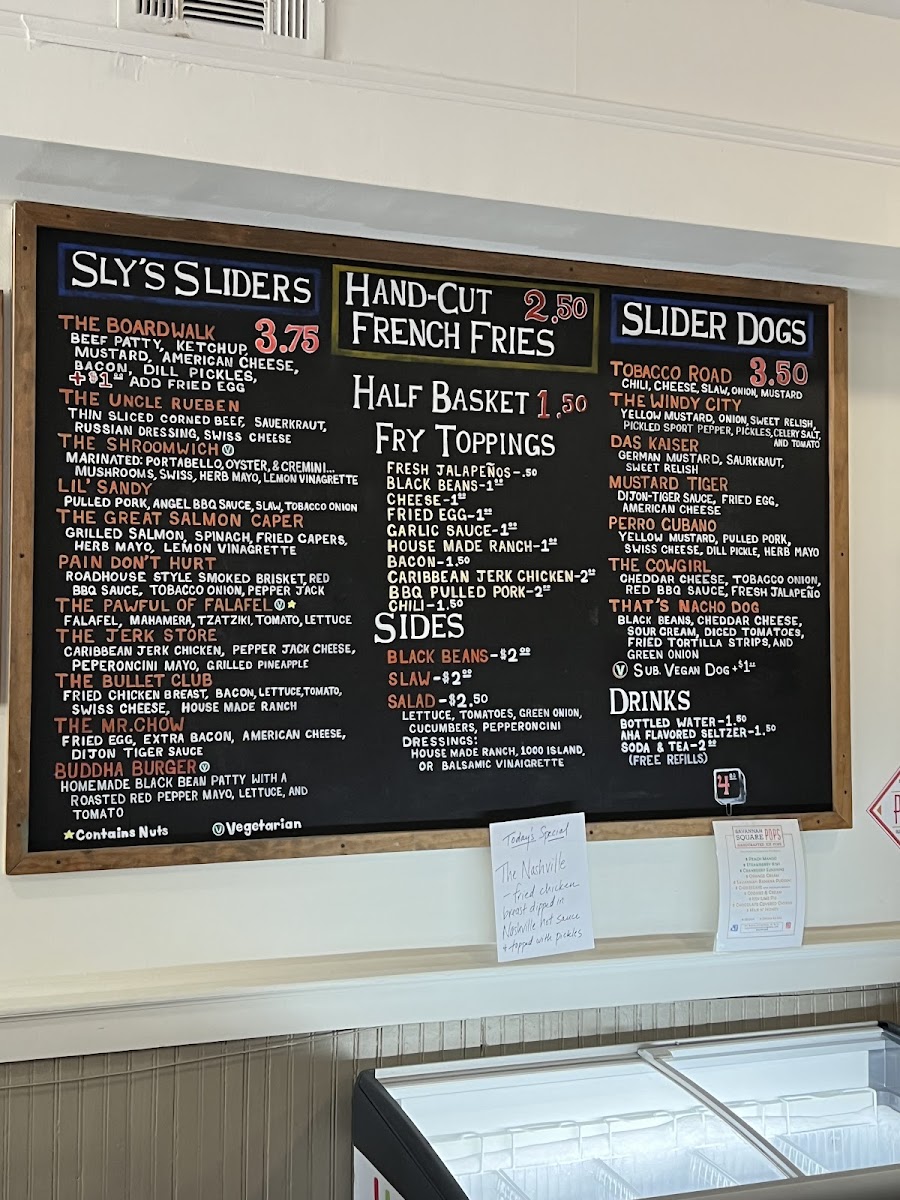 SLY'S SLIDERS
THE BOARDWALK 3.75
BEEF PATTY, KETCHUP,
MUSTARD, AMERICAN CHEESE,
BACON, DILL PICKLES,
+$1.00 ADD FRIED EGG
THE UNCLE RUEBEN
THIN SLICED CORNED BEEF, SAUERKRAUT,
RUSSIAN DRESSING, SWISS CHEESE
THE SHROOMWICH V
MARINATED: PORTABELLO, OYSTER, & CREMINI...
MUSHROOMS, SWISS, HERB MAYO, LEMON VINAGRETTE
LIL' SANDY
PULLED PORK, ANGEL BBQ SAUCE, SLAW, TOBACCO ONION
THE GREAT SALMON CAPER
GRILLED SALMON, SPINACH, FRIED CAPERS,
HERB MAYO, LEMON VINAGRETTE
PAIN DON'T HURT
ROADHOUSE STYLE SMOKED BRISKET, RED
BBQ SAUCE, TOBACCO ONION, PEPPER JACK
THE PAWFUL OF FALAFEL V ★
FALAFEL, MAHAMERA, TZATZIKI, TOMATO, LETTUCE
THE JERK STORE
CARIBBEAN JERK CHICKEN, PEPPER JACK CHEESE,
PEPERONCINI MAYO, GRILLED PINEAPPLE
THE BULLET CLUB
FRIED CHICKEN BREAST, BACON, LETTUCE, TOMATO,
SWISS CHEESE, HOUSE MADE RANCH
THE MR. CHOW
FRIED EGG, EXTRA BACON, AMERICAN CHEESE,
DIJON TIGER SAUCE
BUDDHA BURGER V
HOMEMADE BLACK BEAN PATTY WITH A
ROASTED RED PEPPER MAYO, LETTUCE, AND
TOMATO
★Contains Nuts V Vegetarian
HAND-CUT 2.50
FRENCH FRIES
HALF BASKET 1.50
FRY TOPPINGS
FRESH JALAPEÑOS-.50
BLACK BEANS-1.00
CHEESE-1.00
FRIED EGG-1.00
GARLIC SAUCE-1.00
HOUSE MADE RANCH-1.00
BACON-1.50
CARIBBEAN JERK CHICKEN-2.00
BBQ PULLED PORK-2.00
CHILI-1.50
SIDES
BLACK BEANS-$2.00
SLAW-$2.00
SALAD-$2.50
LETTUCE, TOMATOES, GREEN ONION,
CUCUMBERS, PEPPERONCINI
DRESSINGS:
HOUSE MADE RANCH, 1000 ISLAND,
OR BALSAMIC VINAIGRETTE
SLIDER DOGS
TOBACCO ROAD 3.50
CHILI, CHEESE, SLAW, ONION, MUSTARD
THE WINDY CITY
YELLOW MUSTARD, ONION, SWEET RELISH,
PICKLED SPORT PEPPER, PICKLES, CELERY SALT,
AND TOMATO
DAS KAISER
GERMAN MUSTARD, SAURKRAUT,
SWEET RELISH
MUSTARD TIGER
DIJON-TIGER SAUCE, FRIED EGG,
AMERICAN CHEESE
PERRO CUBANO
YELLOW MUSTARD, PULLED PORK,
SWISS CHEESE, DILL PICKLE, HERB MAYO
THE COWGIRL
CHEDDAR CHEESE, TOBACCO ONION,
RED BBQ SAUCE, FRESH JALAPEÑO
THAT'S NACHO DOG
BLACK BEANS, CHEDDAR CHEESE,
SOUR CREAM, DICED TOMATOES,
FRIED TORTILLA STRIPS, AND
GREEN ONION
V SUB VEGAN DOG +$1.00
DRINKS
BOTTLED WATER-1.50
AHA FLAVORED SELTZER-1.50
SODA & TEA-2.00
(FREE REFILLS)
4.00
Today's Special
The Nashville
- fried chicken
breast dipped in
Nashville hot sauce
& topped with pickles
SAVANNAH
SQUARE POPS
P